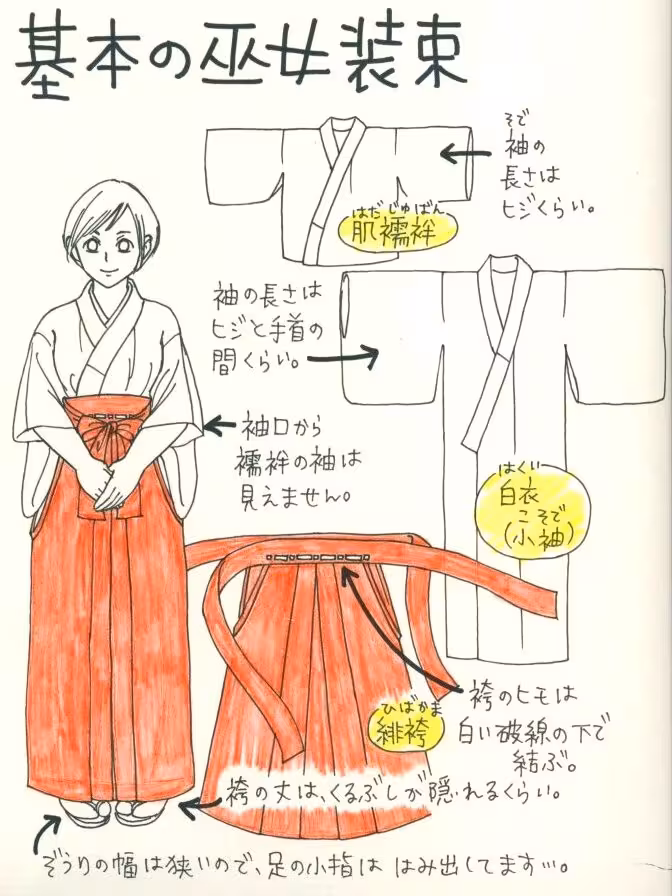 基本の巫女装束
そで
袖の
長さは
ヒジくらい。
はだじゅばん
肌襦袢
袖の長さは
ヒジと手首の
間くらい。
袖口から
襦袢の袖は
見えません。
はくい
白衣
こそで
(小袖)
袴のヒモは
白い破線の下で
結ぶ。
ひばかま
緋袴
袴の丈は、くるぶしが隠れるくらい。
ぞうりの幅は狭いので、足の小指は はみ出してます…。